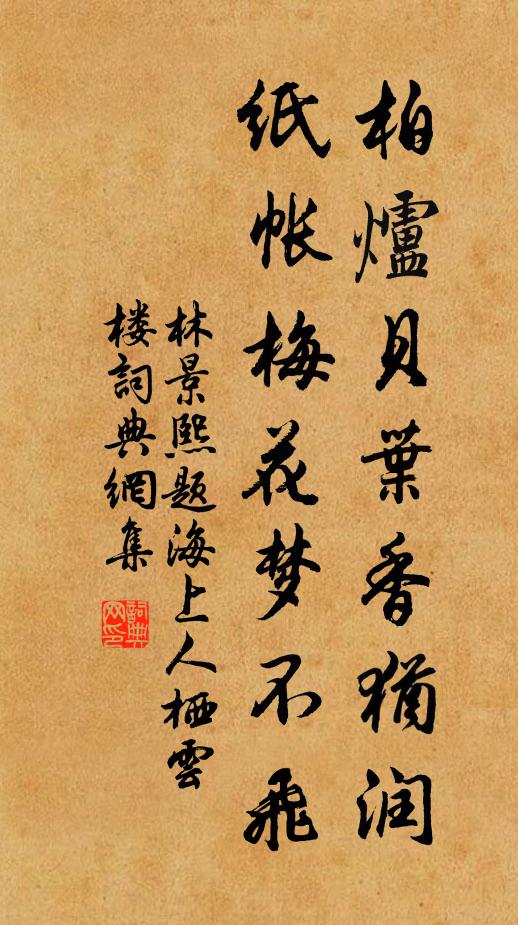 柏爐貝葉香猶润
纸帐梅花梦不飛
林景熙题海上人栖雲
楼詞典網集
詞典網印